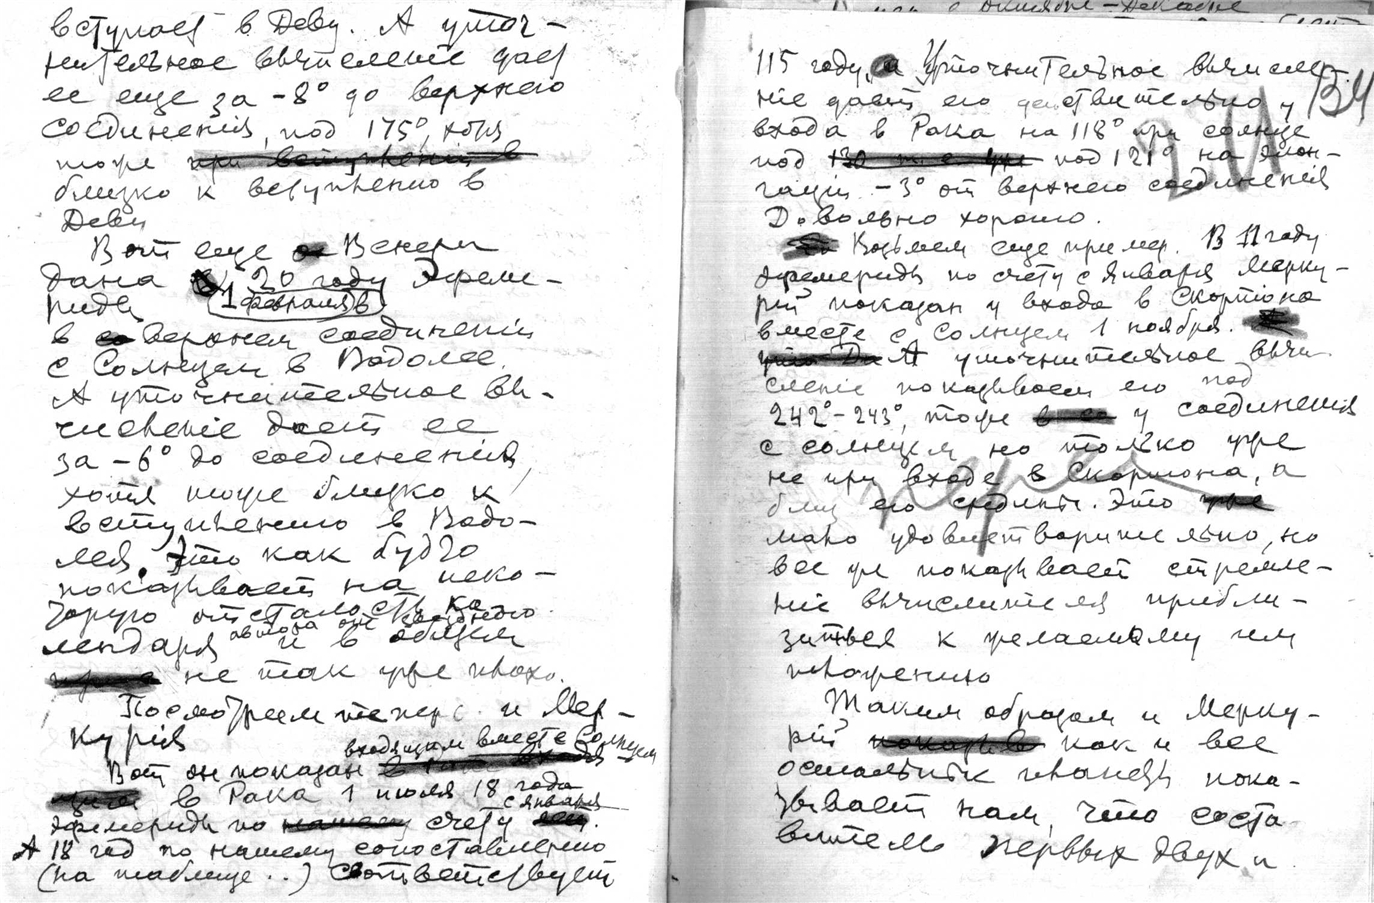 вступает в Деву. А уточ-
нительное вычисленіе дает
ее еще за -8° до верхнего
соединенія, под 175°, хотя
тоже при вступленіи в
близко к вступленію в
Деву
Вот еще Венера
дана в 20 году Эфеме-
риды 1 февраля в
в верхнем соединеніи
с Солнцем в Водолее.
А уточнительное вы-
численіе дает ее
за -6° до соединенія,
хотя тоже близко к
вступленію в Водо-
лея. Это как будто
показывает на неко-
торую отсталость ка-
лендаря автора от
и в общем
не так уже плохо.
Посмотрим теперь и Мер-
курія
входящим вместе с Солнцем
Вот он показан
в Рака 1 июля 18 года
с января
Эфемериды по нашему счету
А 18 год по нашему сопоставлению
(на таблице ..) соответствует
115 году, и Уточнительное вычисле-
ніе дает его действительно у
входа в Рака на 118° при солнце
под 130 под 121° на элон-
гаціи -3° от верхнего соединенія
Довольно хорошо.
Возьмем еще пример. В 11 году
Эфемериды по счету с января Мерку-
рій показан у входа в Скорпіона
вместе с Солнцем 1 ноября.
А уточнительное вычи-
сленіе показывает его под
242°-243°, тоже у соединенія
с солнцем но только уже
не при входе в Скорпіона, а
близ его средины. Это уже
мало удовлетворительно, но
все же показывает стремле-
ніе вычислителя прибли-
зиться к желаемому им
положению
Таким образом и Мерку-
рій показыв как и все
остальные планеты пока-
зывает нам, что соста-
витель первых двух и
134
201